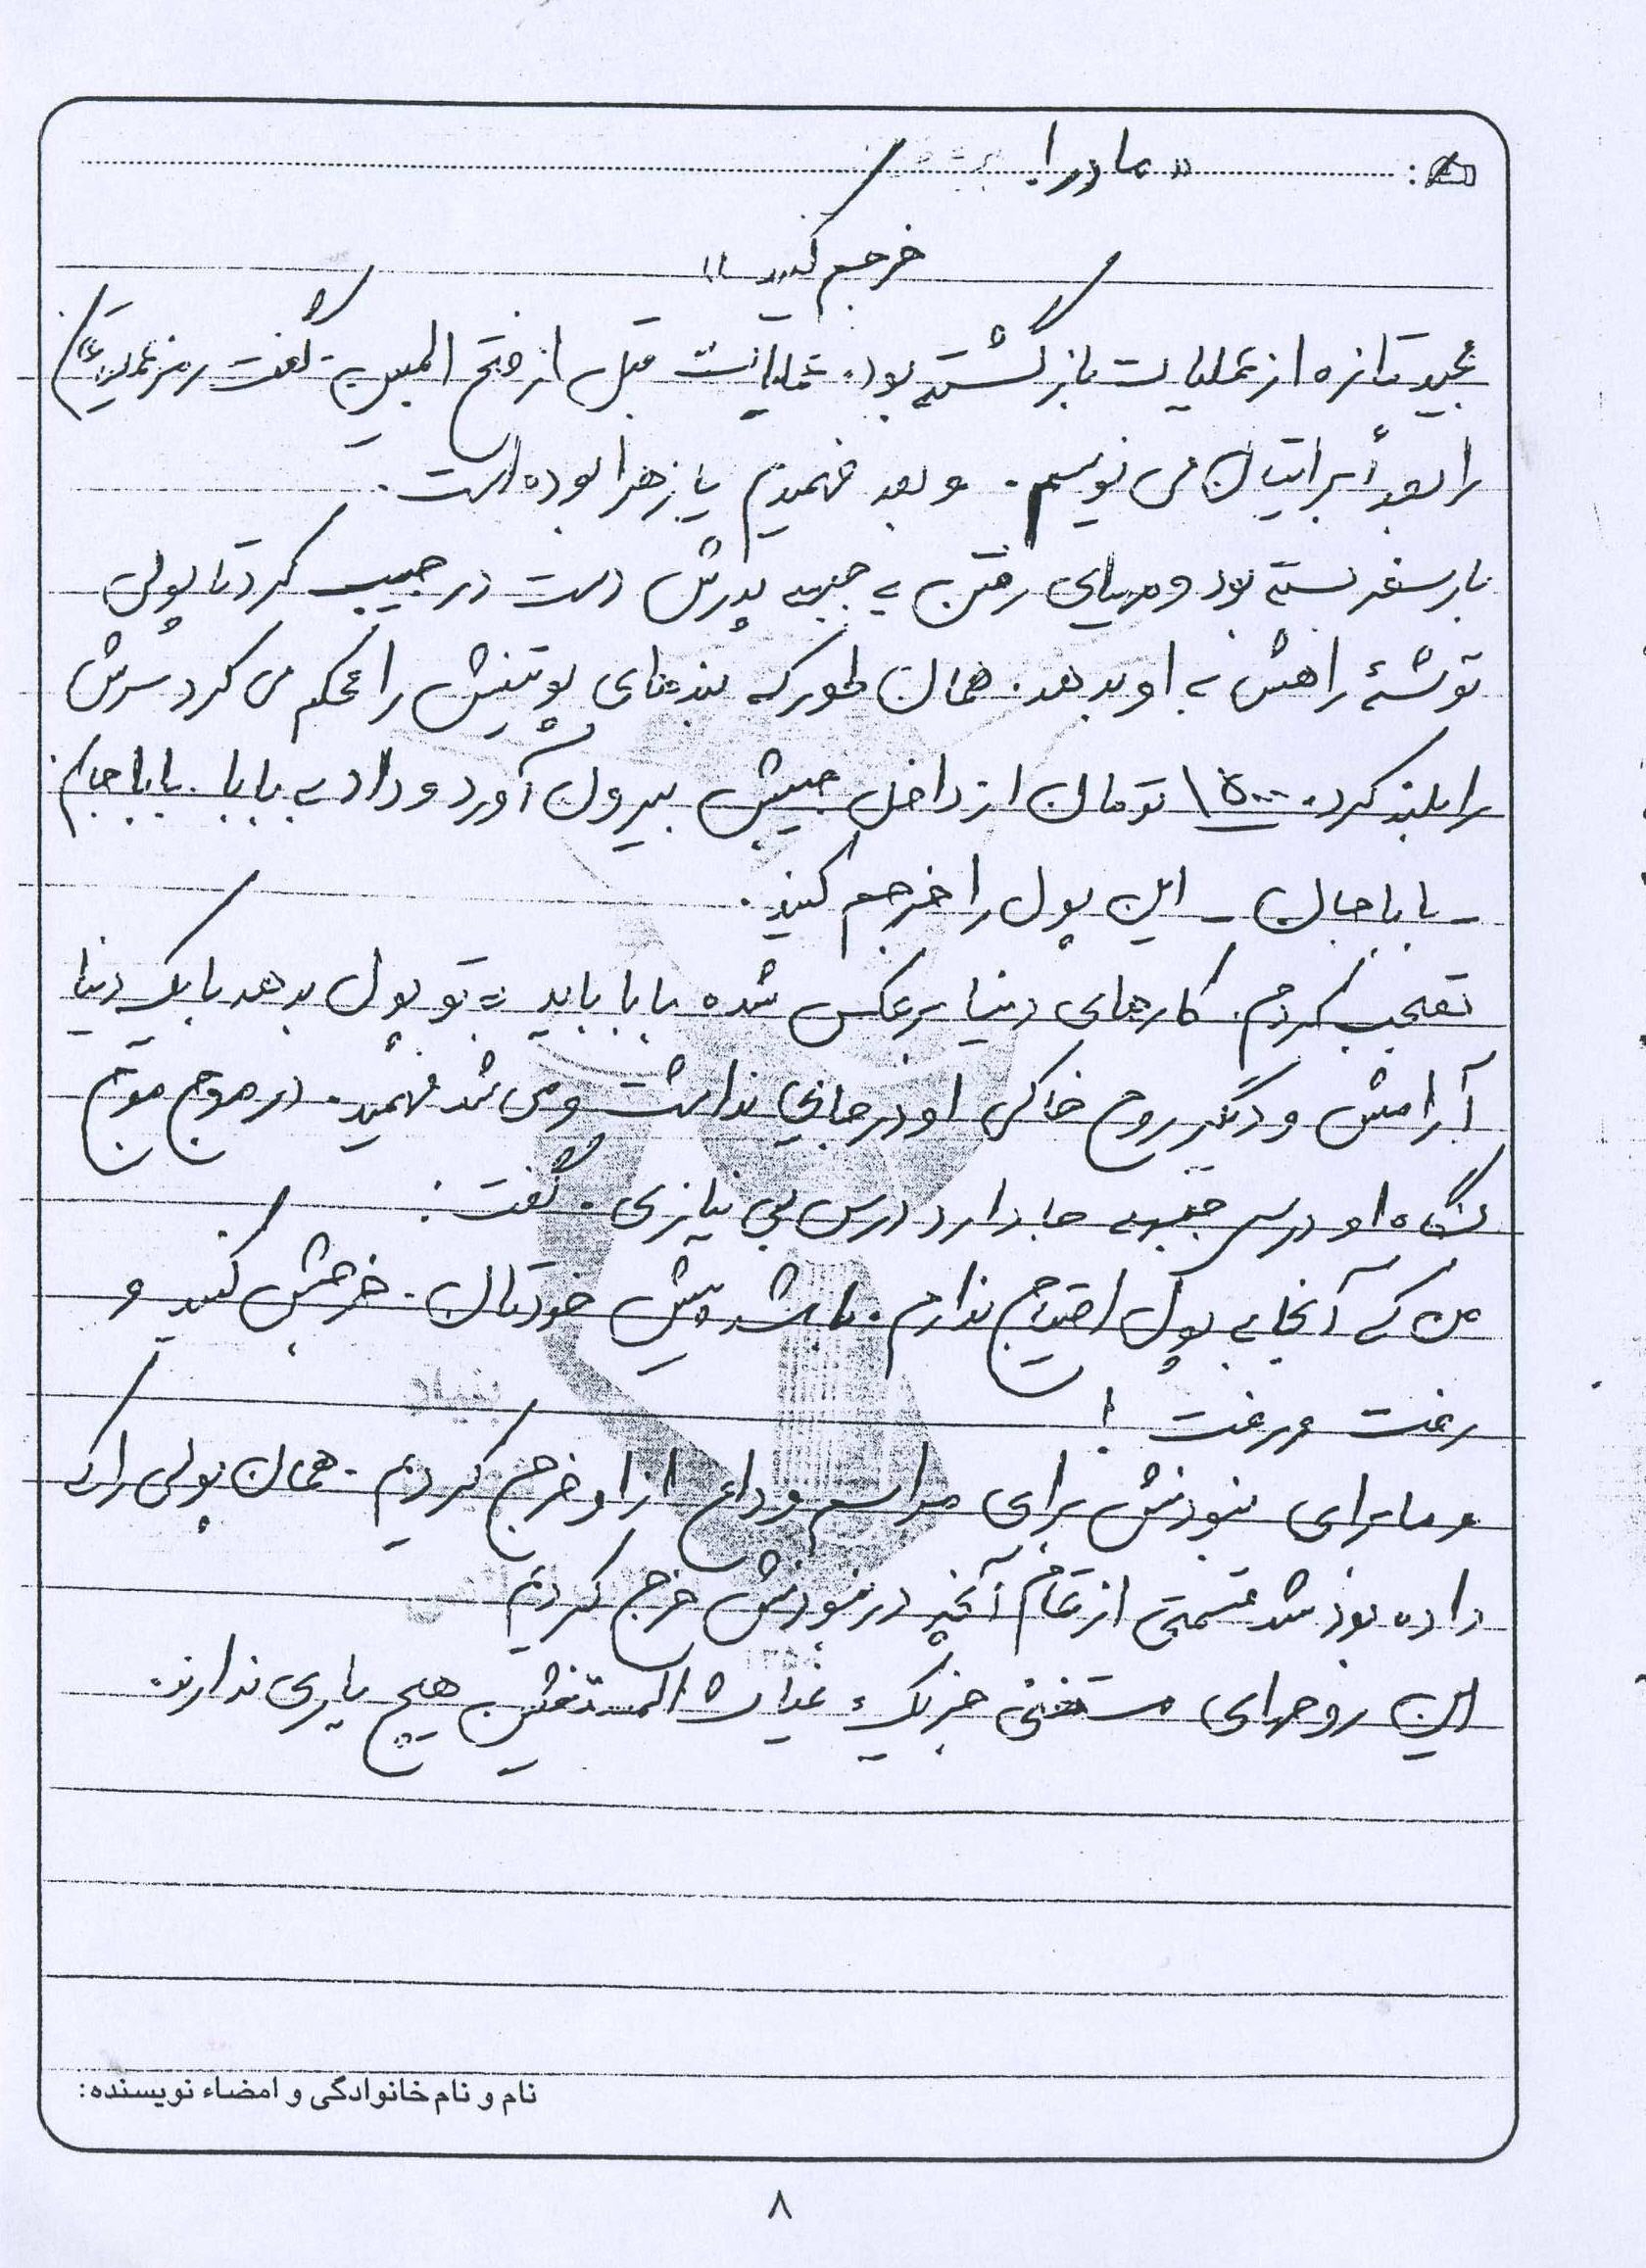 « مادر !
خرجم کنید »
مجید تازه از عملیات بازگشته بود. عملیات قبل از فتح المبین. گفت رمز عملیات
را بعداً برایتان می نویسم. و بعد فهمیدیم یا زهرا بوده است.
بار سفر بسته بود و مهیای رفتن به جبهه پدرش دست در جیب کرد تا پولی
توشهٔ راهش به او بدهد. همان طور که بندهای پوتینش را محکم می کرد سرش
را بلند کرد. ۱۵۰۰ تومان از داخل جیبش بیرون آورد و داد به بابا. باباجانم
_ باباجان _ این پول را خرجم کنید.
تعجب کردم. کارهای دنیا برعکس شده بابا باید به تو پول بدهد با یک دنیا
آرامش و دیگر روح خاکی او در جانی نداشت و می شد فهمید. در موج موج
نگاه او درس جبهه جا دارد درس بی نیازی. گفت :
من که آنجا به پول احتیاج ندارم. باشد پیش خودتان. خرجش کنید و
رفت و رفت !
و ما برای نبودنش برای مراسم وداع از او خرج کردیم. همان پولی را که
داده بود شد قسمتی از تمام آنچه در نبودنش خرج کردیم
این روحهای مستغنی جز یک غیاث المستغثین هیچ یاری ندارند.
بنیاد
نام و نام خانوادگی و امضاء نویسنده:
۸